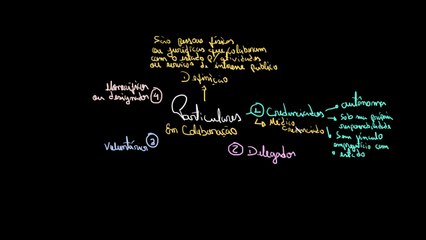 São pessoas físicas
ou jurídicas que colaboram
com o estado p/ atividades
ou serviços de interesse público
Definição
Honoríficos
ou designados ④
Particulares
Em Colaboração
1 Credenciados
↳ Médico
Credenciado
→ autônoma
→ Sob sua própria
responsabilidade
→ Sem vínculo
empregatício com
o estado
Voluntários ③
② Delegados